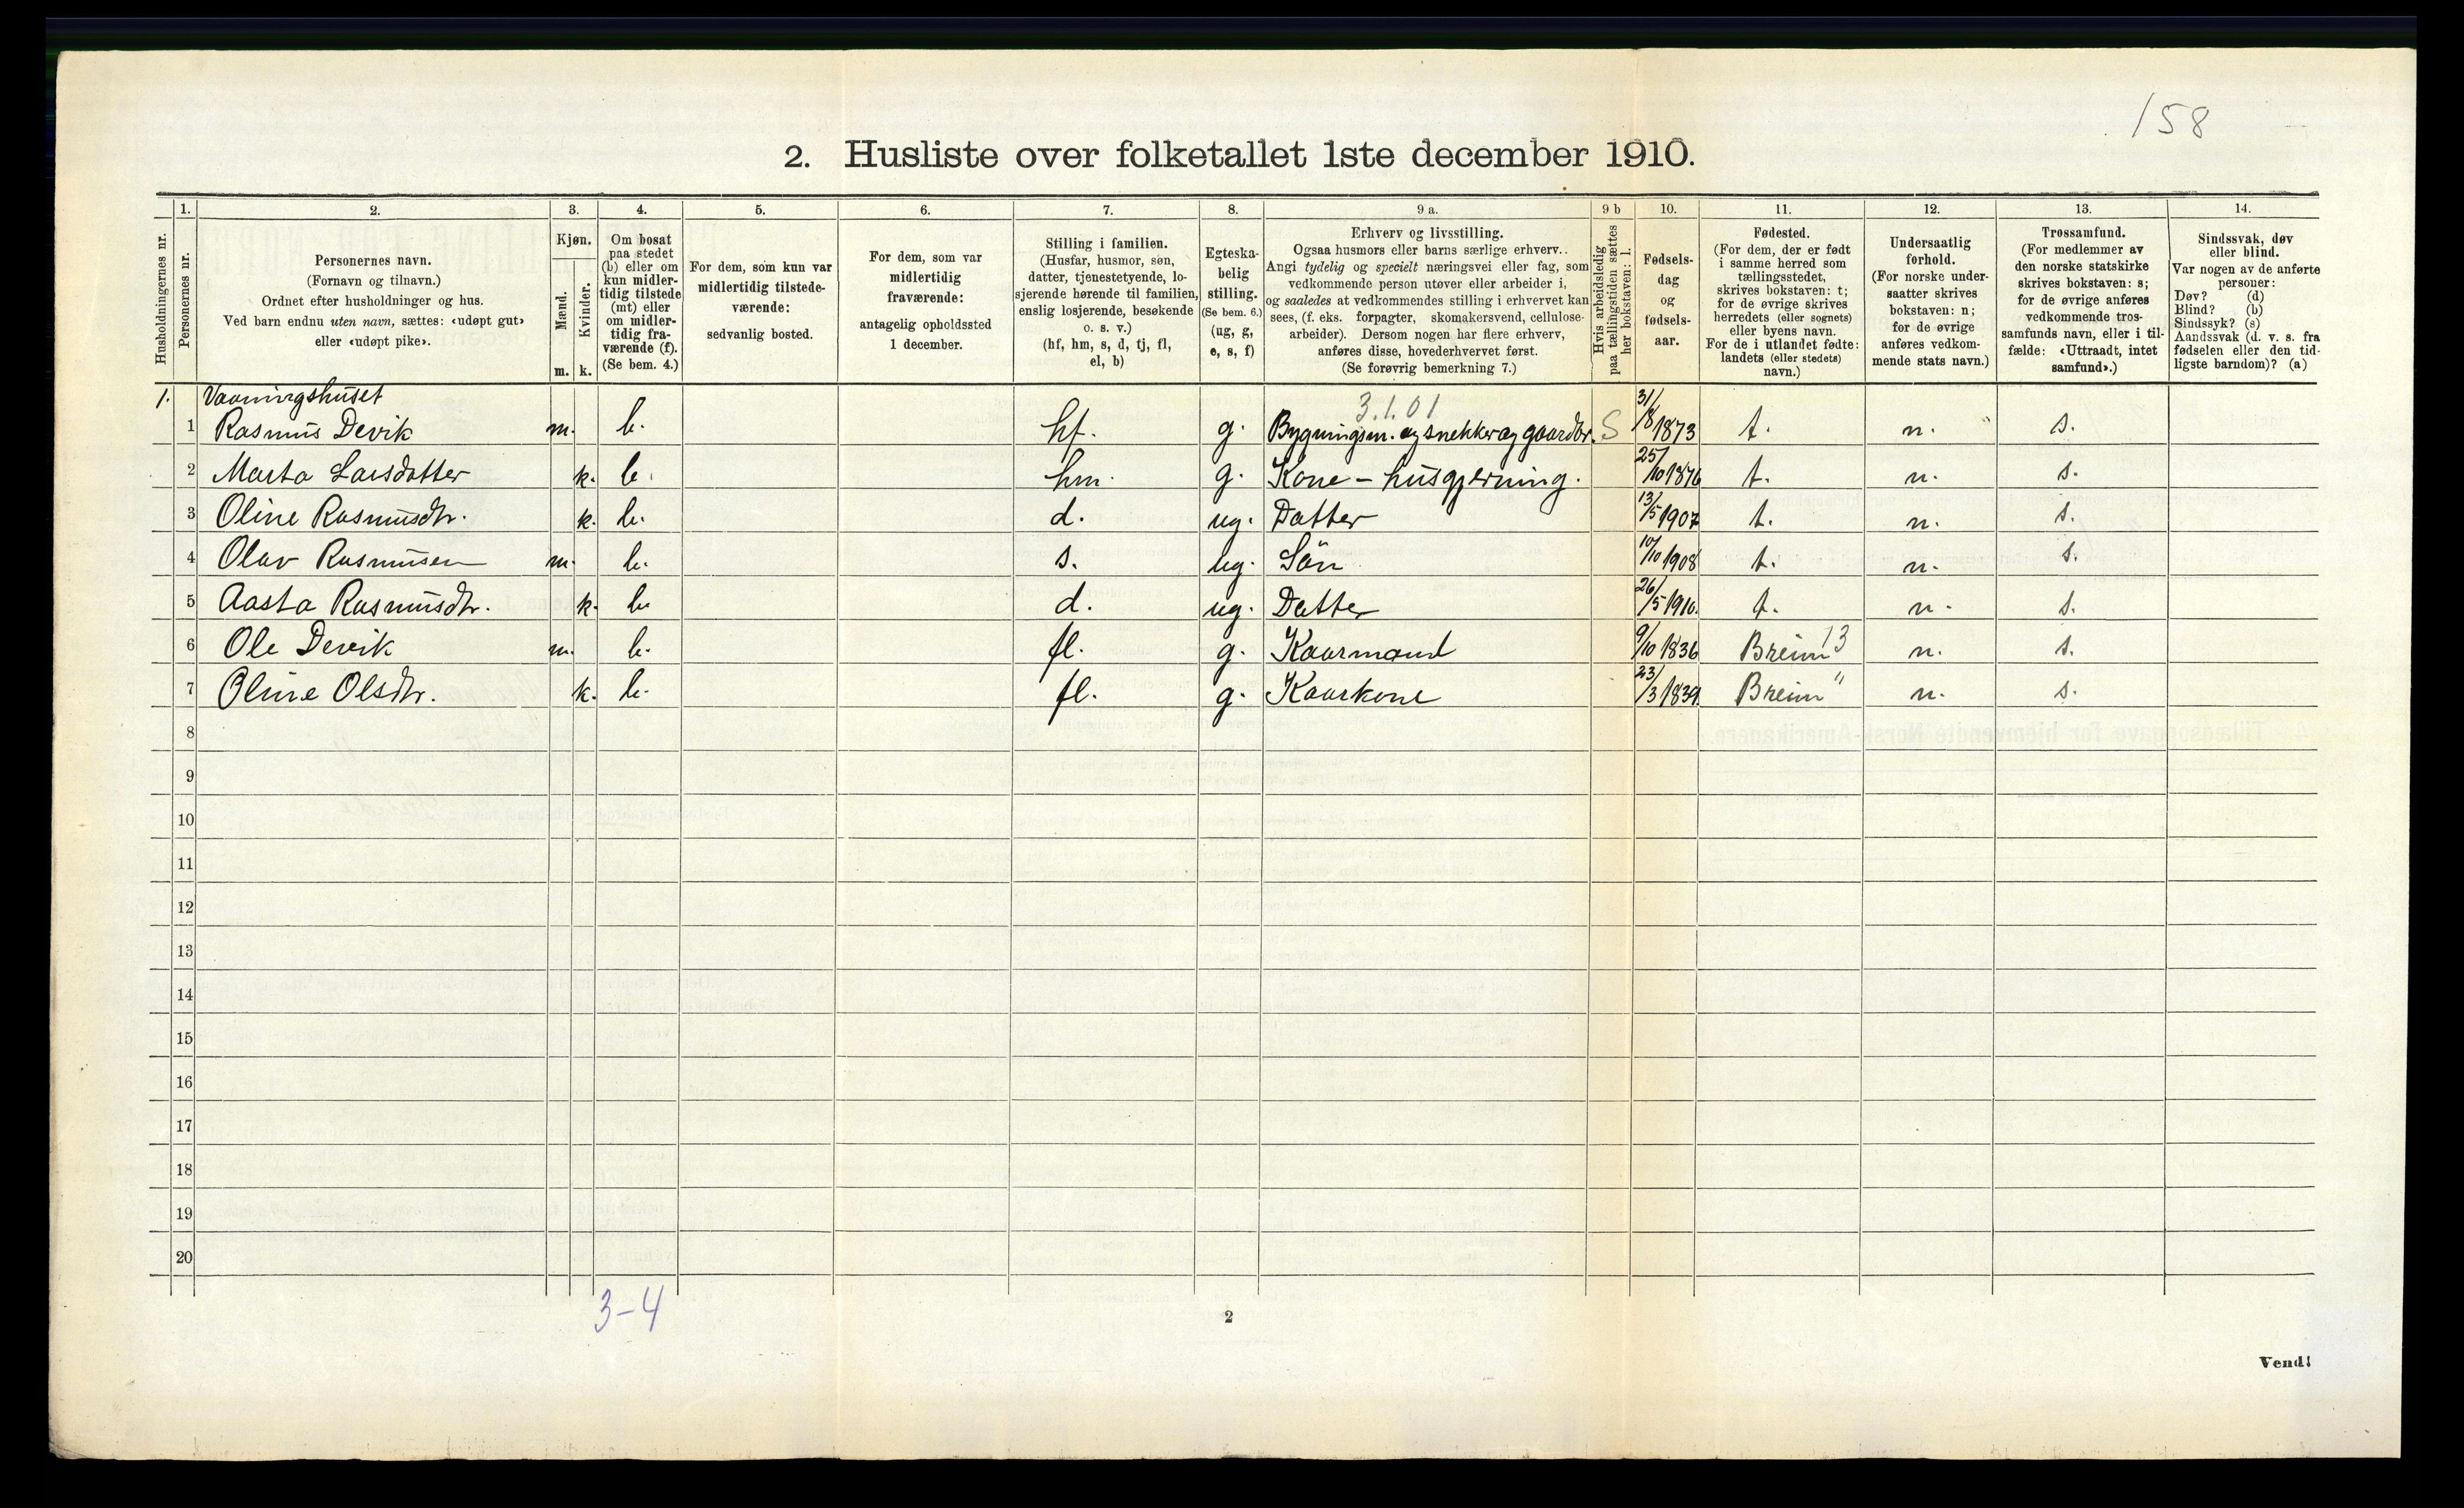 158
2. Husliste over folketallet 1ste december 1910.
Husholdningernes nr.
1.
Personernes nr.
2.
Personernes navn.
(Fornavn og tilnavn.)
Ordnet efter husholdninger og hus.
Ved barn endnu uten navn, sættes: «udøpt gut»
eller «udøpt pike».
3.
Kjøn.
Mænd.
Kvinder.
m. k.
4.
Om bosat
paa stedet
(b) eller om
kun midler-
tidig tilstede
(mt) eller
om midler-
tidig fra-
værende (f).
(Se bem. 4.)
5.
For dem, som kun var
midlertidig tilstede-
værende:
sedvanlig bosted.
6.
For dem, som var
midlertidig
fraværende:
antagelig opholdssted
1 december.
7.
Stilling i familien.
(Husfar, husmor, søn,
datter, tjenestetyende, lo-
sjerende hørende til familien,
enslig losjerende, besøkende
o. s. v.)
(hf, hm, s, d, tj, fl,
el, b)
8.
Egteska-
belig
stilling.
(Se bem. 6.)
(ug, g,
e, s, f)
9 a.
Erhverv og livsstilling.
Ogsaa husmors eller barns særlige erhverv..
Angi tydelig og specielt næringsvei eller fag, som
vedkommende person utøver eller arbeider i,
og saaledes at vedkommendes stilling i erhvervet kan
sees, (f. eks. forpagter, skomakersvend, cellulose-
arbeider). Dersom nogen har flere erhverv,
anføres disse, hovederhvervet først.
(Se forøvrig bemerkning 7.)
9 b
Hvis arbeidsledig
paa tællingstiden sættes
her bokstaven: l.
10.
Fødsels-
dag
og
fødsels-
aar.
11.
Fødested.
(For dem, der er født
i samme herred som
tællingsstedet,
skrives bokstaven: t;
for de øvrige skrives
herredets (eller sognets)
eller byens navn.
For de i utlandet fødte:
landets (eller stedets)
navn.)
12.
Undersaatlig
forhold.
(For norske under-
saatter skrives
bokstaven: n;
for de øvrige
anføres vedkom-
mende stats navn.)
13.
Trossamfund.
(For medlemmer av
den norske statskirke
skrives bokstaven: s;
for de øvrige anføres
vedkommende tros-
samfunds navn, eller i til-
fælde: «Uttraadt, intet
samfund».)
14.
Sindssvak, døv
eller blind.
Var nogen av de anførte
personer:
Døv? (d)
Blind? (b)
Sindssyk? (s)
Aandssvak (d. v. s. fra
fødselen eller den tid-
ligste barndom)? (a)
1. Vaaningshuset
3.1.01
1 Rasmus Devik m. b. hf. g. Bygningsm. og snekker og gaardbr. S 31/8 1873 t. n. s.
2 Marta Larsdatter k. b. hm. g. Kone - husgjerning. 25/10 1876 t. n. s.
3 Oline Rasmusdtr. k. b. d. ug. Datter 13/5 1907 t. n. s.
4 Olav Rasmusen m. b. s. ug. Sön 10/10 1908 t. n. s.
5 Aasta Rasmusdtr. k. b. d. ug. Datter 26/5 1910. t. n. s.
6 Ole Devik m. b. fl. g. Kaarmand 9/10 1836 Breim 13 n. s.
7 Oline Olsdtr. k. b. fl. g. Kaarkone 23/3 1839. Breim " n. s.
8
9
10
11
12
13
14
15
16
17
18
19
20
3-4
2
Vend!